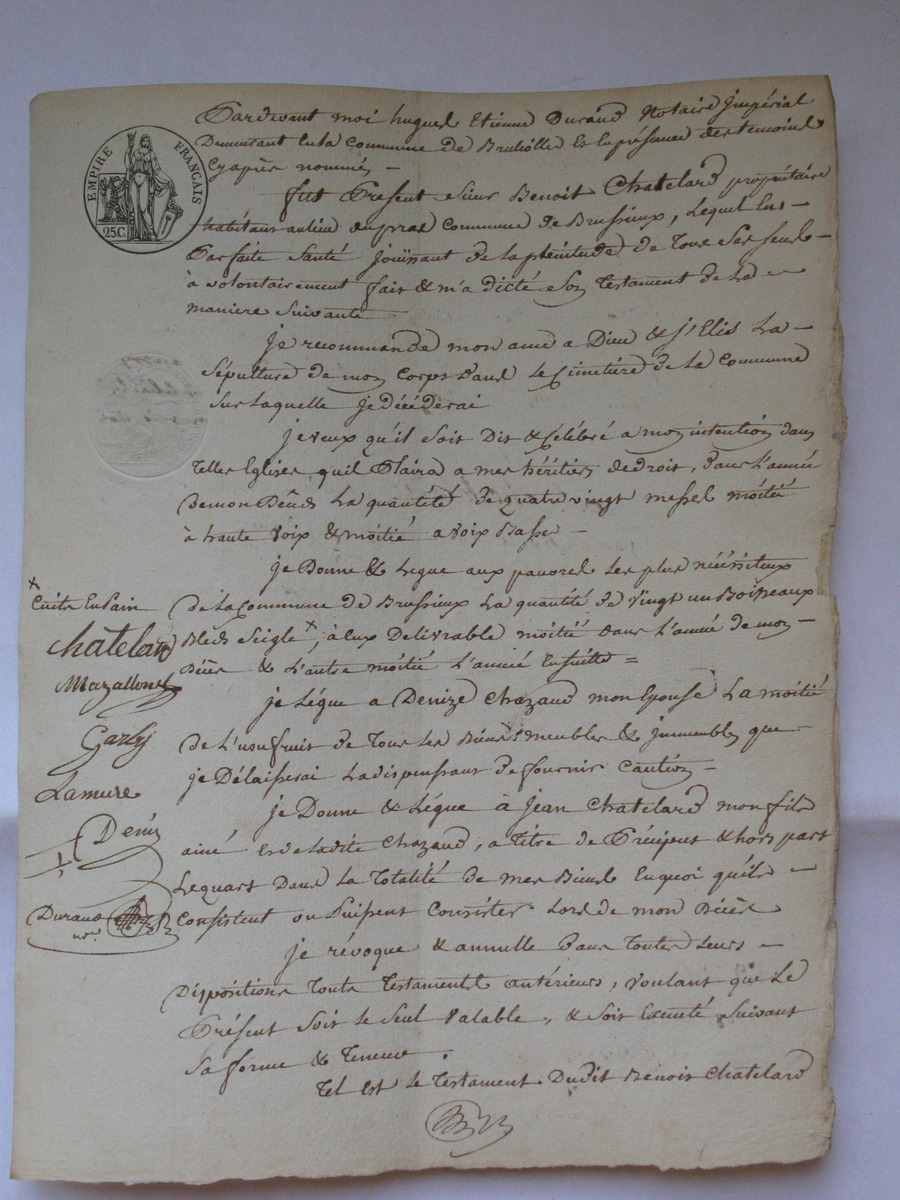 EMPIRE FRANÇAIS
25C.
Pardevant moi hugues Etienne Durand Notaire Jmpérial
Demeurant En la Commune de Brullolles Es En présence des temoins
Cy après nommés –
fut Présent Sieur Benoit Chatelard propriétaire
habitant au lieu du pral Commune de Brussieux, Lequel En –
Parfaite Santé joüissant de la plénitude de Tous Ses Sens –
à volontairement fait & m'a dicté Son Testament de La –
maniere Suivante –
je recommande mon ame a Dieu & j'Elis La –
Sépulture de mon Corps Dans Le Cimetière de La Commune
Sur Laquelle je décéderai
je veux qu'il Soit Dit & Célébré a mon intention dans
Telles Eglises qu'il Plaira a mes héritiers de droit, Dans L'année
De mon Décès La quantité de quatre vingt messes moitié
à haute Voix & moitié a Voix Basse –
je Donne & Legue aux pauvres Les plus nécésiteux
De La Commune de Brussieux La quantité de Vingt un Boisseaux
Bled Seigle x, à Eux Delivrable moitié dans L'année de mon –
Décès & L'autre moitié L'année Ensuitte =
je Légue a Denize Chazaud mon Epouse La moitié
de L'usufruit de Tous Les Biens meubles & jmmeubles que –
je Délaisserai La dispensant de fournir Caution –
je Donne & Légue à Jean Chatelard mon fils
ainé Es de Ladite Chazaud, a Titre de Préciput & hors part
Le quart Dans La Totalité de mes Biens En quoi qu'ils –
Consistent ou Puissent Consister Lors de mon Décès
je révoque & annulle Dans Toutes Leurs –
Dispositions Touts Testaments antérieurs, Voulant que Le
Présent Soit Le Seul Valable, & Soit Executé Suivant
Sa forme & Teneur.
Tel Est Le Testament Dudit Benoit Chatelard
x
Cuite En Pain
Chatelard
Mazallond
Garby
Lamure
Denis
Durand
nore